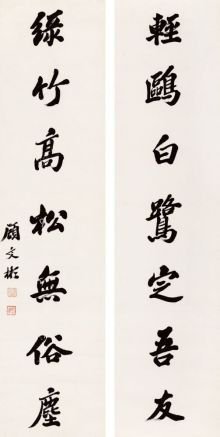 輕鷗白鷺定吾友
綠竹高松無俗塵
顧文彬